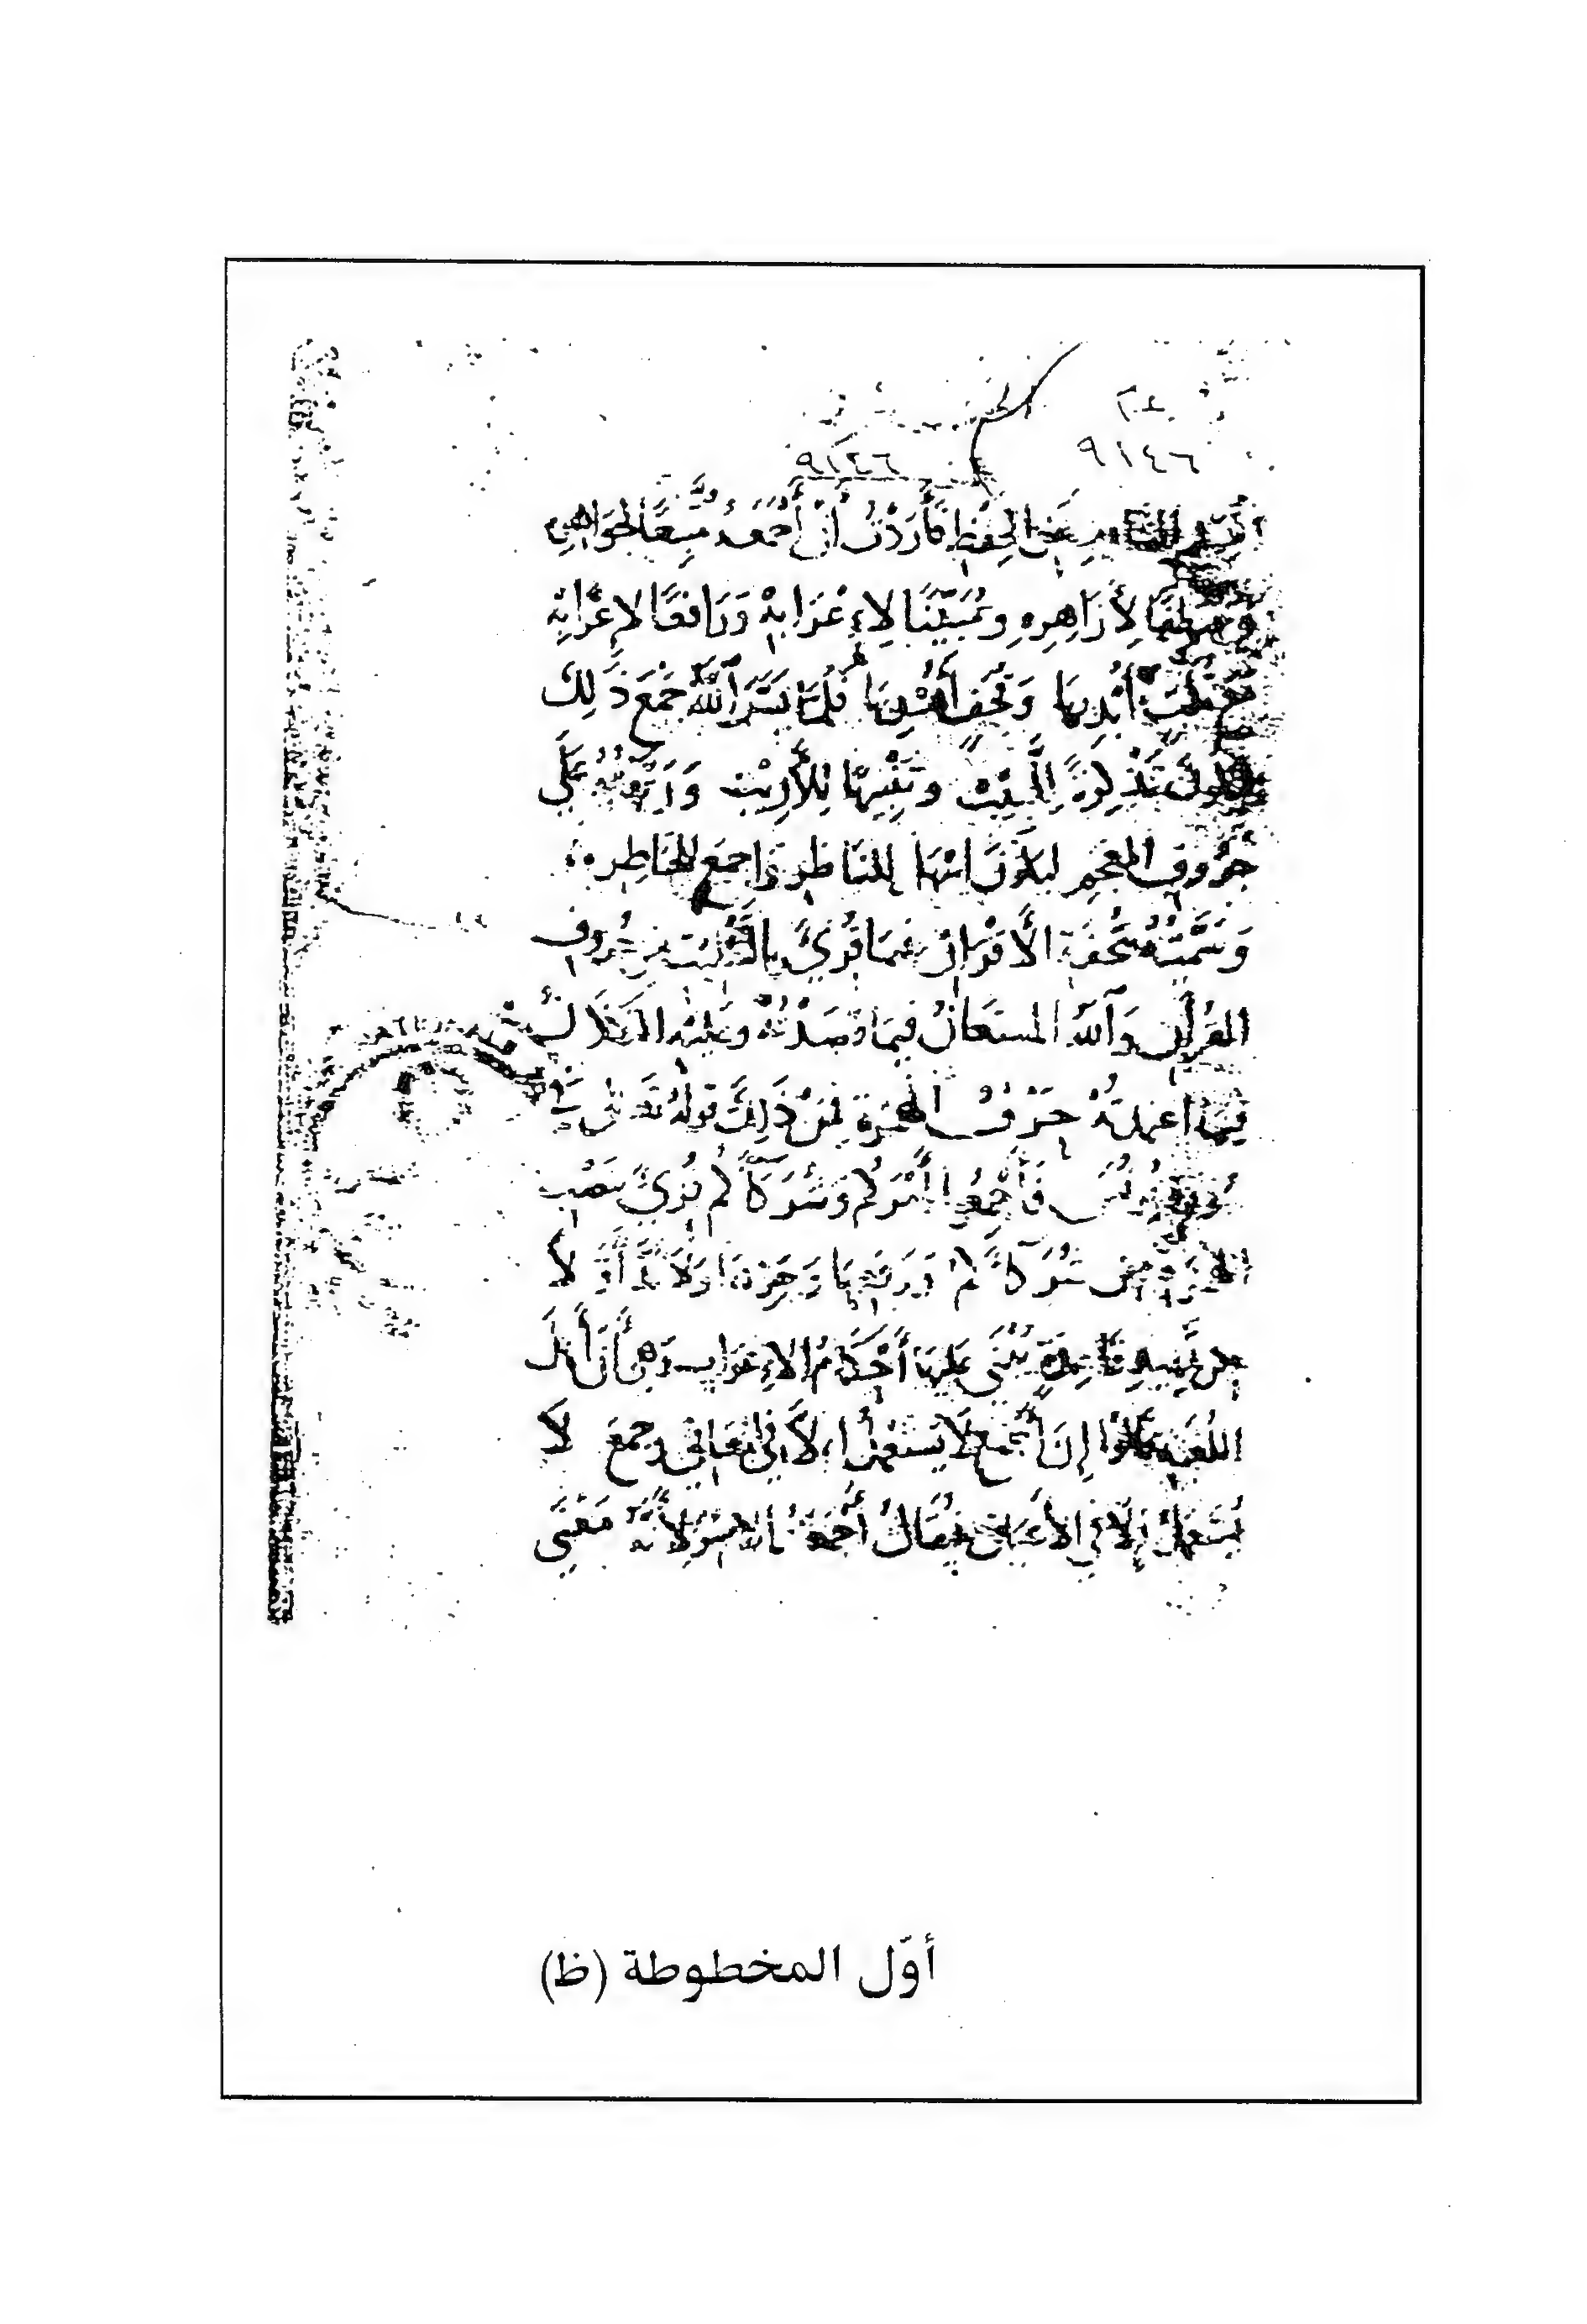 ٩١٤٦
٩١٤٦
الحفظ فأردت أن أجمعه متبعًا لجواهره
لأزاهره ومبيّنًا لإعرابه ورافعًا لإغرابه
فلما يسر الله جمع ذلك
تذكرة للبيب وتنبيهًا للأريب ورتبته على
حروف المعجم ليكون للناظر واجمع للخاطر
وسميته تحفة الأقران فيما قرئ بالتثليث من حروف
القرآن والله المستعان فيما قصدته وعليه التكلان
فيما اعتمدته حرف الهمزة فمن ذلك قوله تعالى في
سورة يونس فأجمعوا أمركم وشركاءكم قرئ بنصب
الهمزة من شركاءكم ورفعها وجرها ولا بد أولا
من تمهيد قاعدة يبنى عليها أحكام الإعراب وهي أن أهل
اللغة قالوا إن أجمع لا يستعمل إلا في المعاني وجمع لا
يستعمل إلا في الأعيان فيقال أجمعت الأمر لأنه معنى
أوّل المخطوطة (ظ)